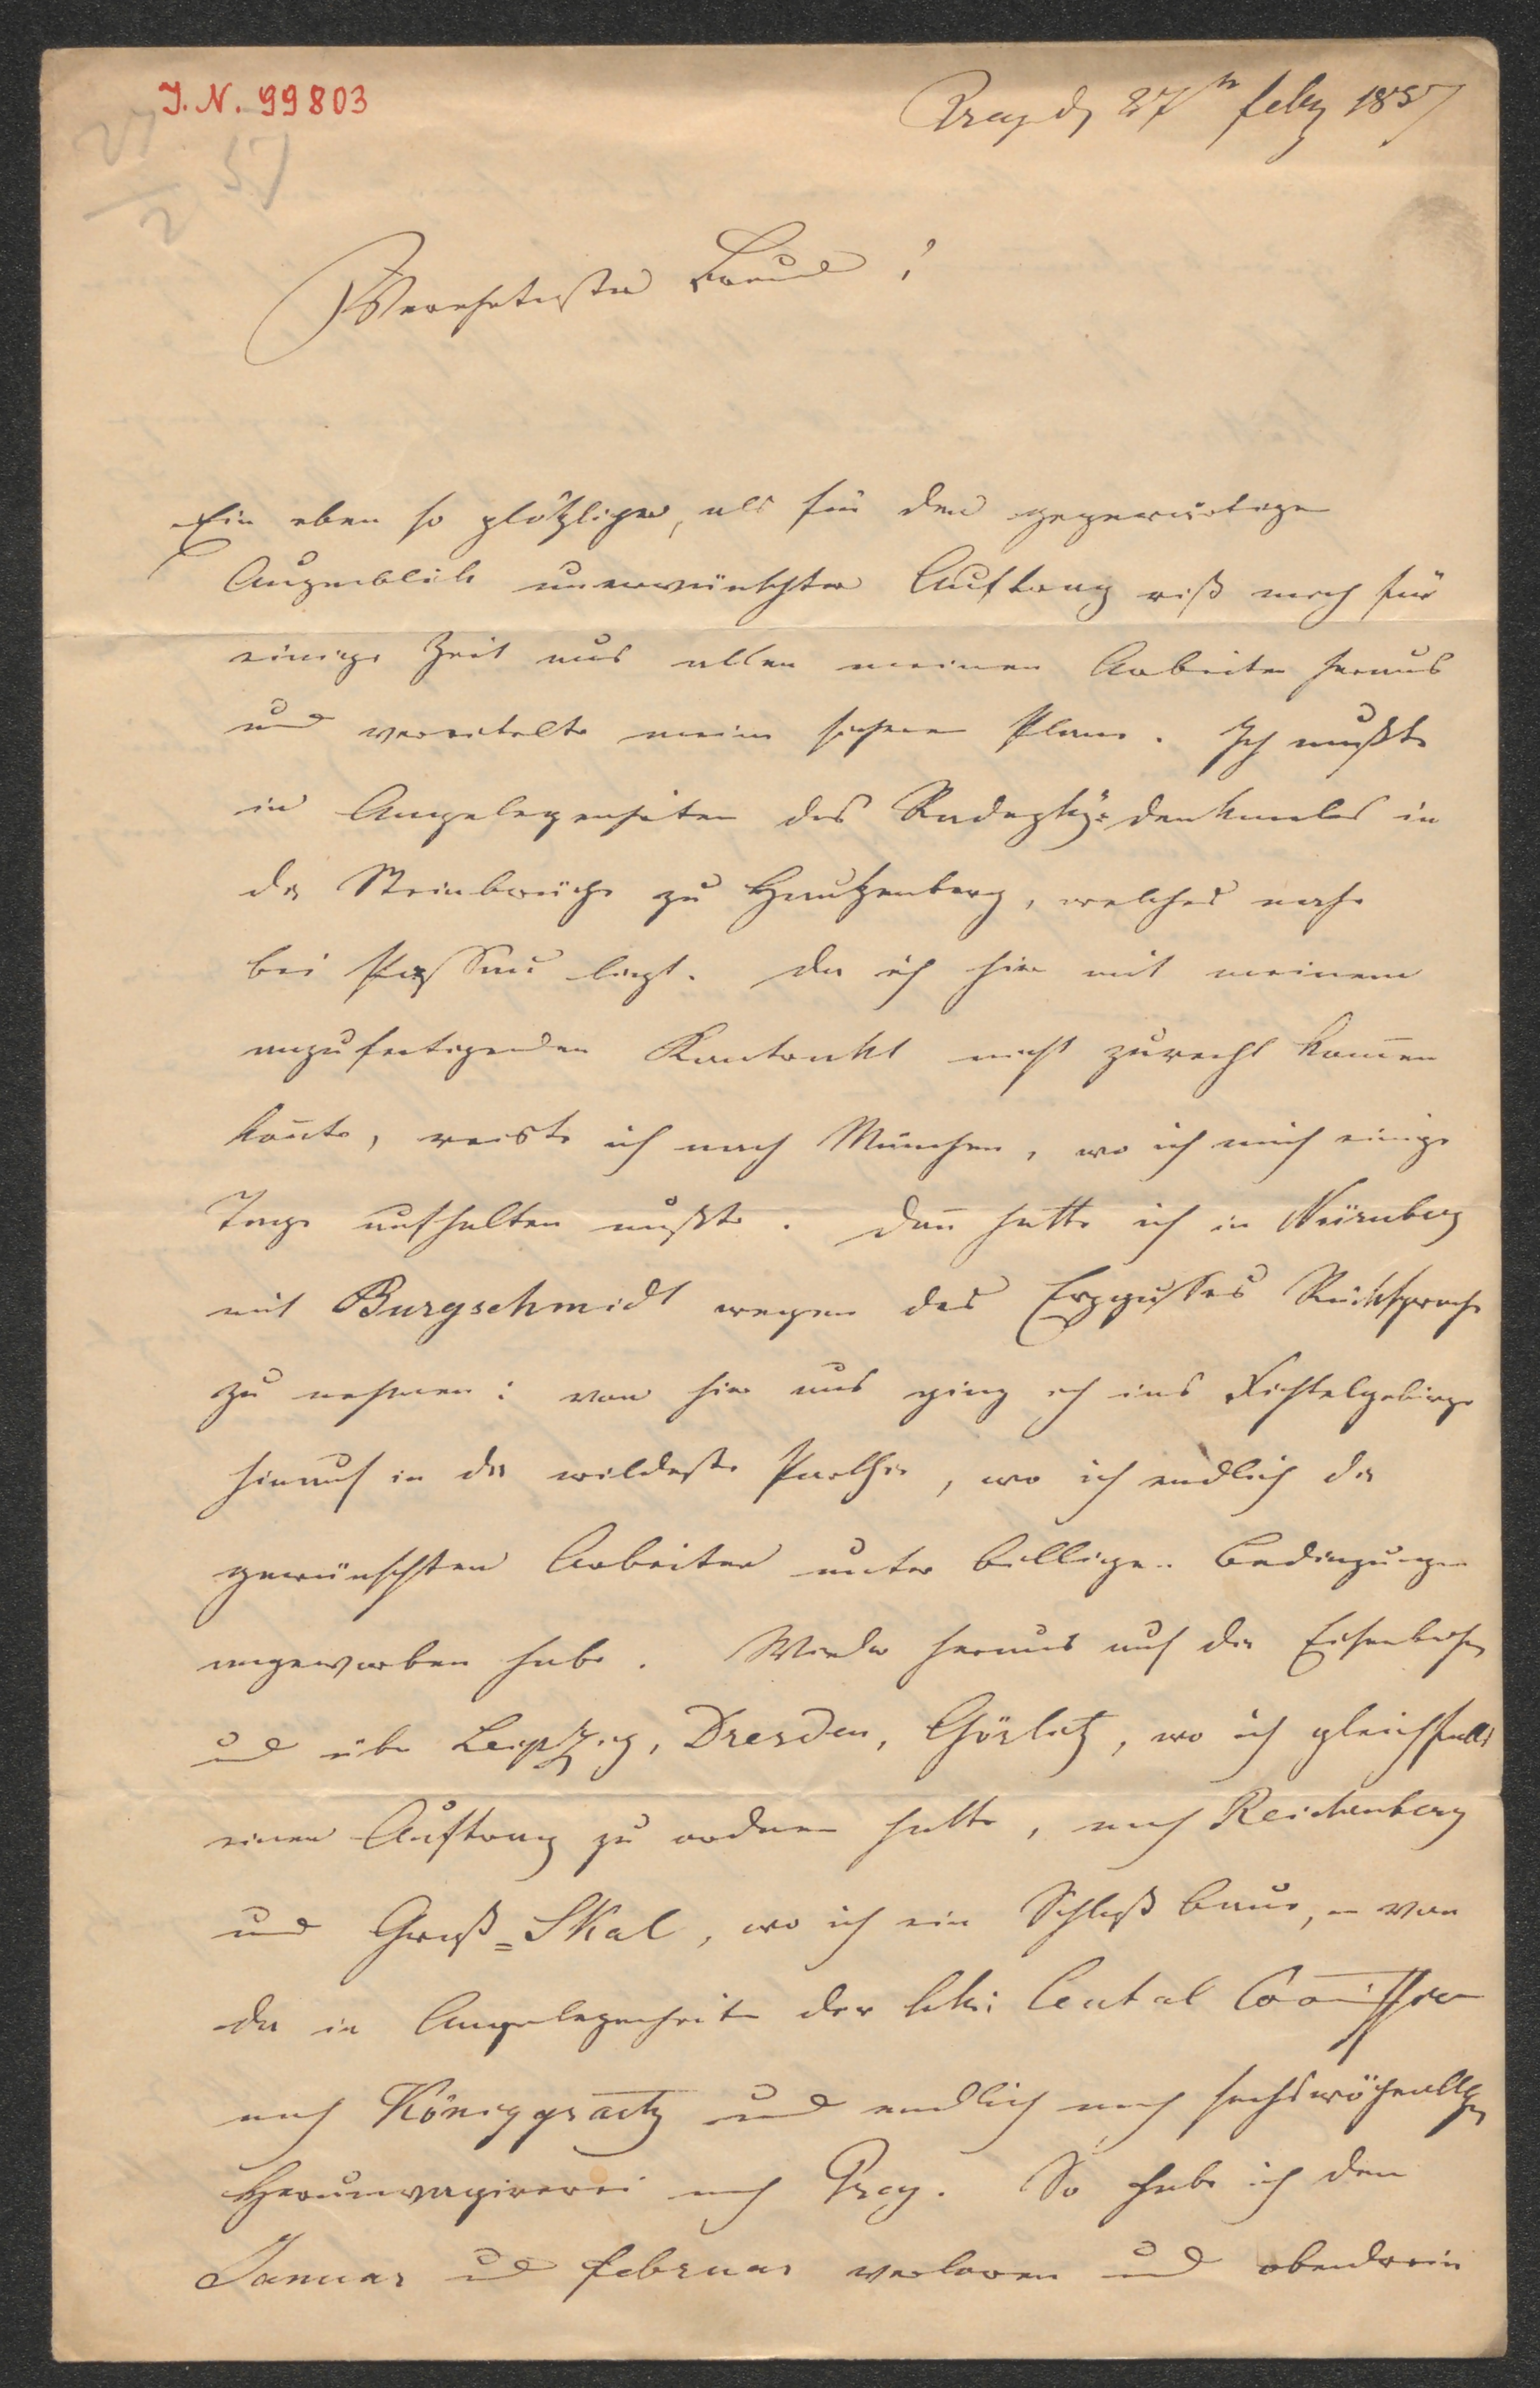 J. N. 99803
Prag d 27n feby 1857
27
2
57
Verehrtester Freund!
Ein eben so plötzlicher, als für den gegenwärtigen
Augenblick unerwünschter Auftrag riß mich für
einige Zeit aus allen meinen Arbeiten heraus
und vereitelte meine schönen Plane. Ich mußte
in Angelegenheiten des Radezky=denkmales in
die Steinbrüche zu Hautzenberg, welches nahe
bei Passau liegt. Da ich hier mit meinem
anzufertigenden Kontrakt nicht zurecht kom̄en
kon̄te, reiste ich nach München, wo ich mich einige
Tage aufhalten mußte. Dan̄ hatte ich in Nürnberg
mit Burgschmidt wegen des Erzgußes Rücksprache
zu nehmen: von hier aus ging ich ins Fichtelgebirge
hinauf in die wildeste Parthie, wo ich endlich die
gewünschten Arbeiter unter billigen Bedingungen
angeworben habe. Wieder heraus auf die Eisenbahn
und über Leipzig, Dresden, Görlitz, wo ich gleichfalls
einen Auftrag zu ordnen hatte, nach Reichenberg
und Groß=Skal, wo ich ein Schloß baue, u von
da in Angelegenheiten der kk: Central Com̄ission
nach Königgraetz und endlich nach sechswöchentlicher
Herumvagirerei nach Prag. So habe ich den
Januar und Februar verloren und obendrein